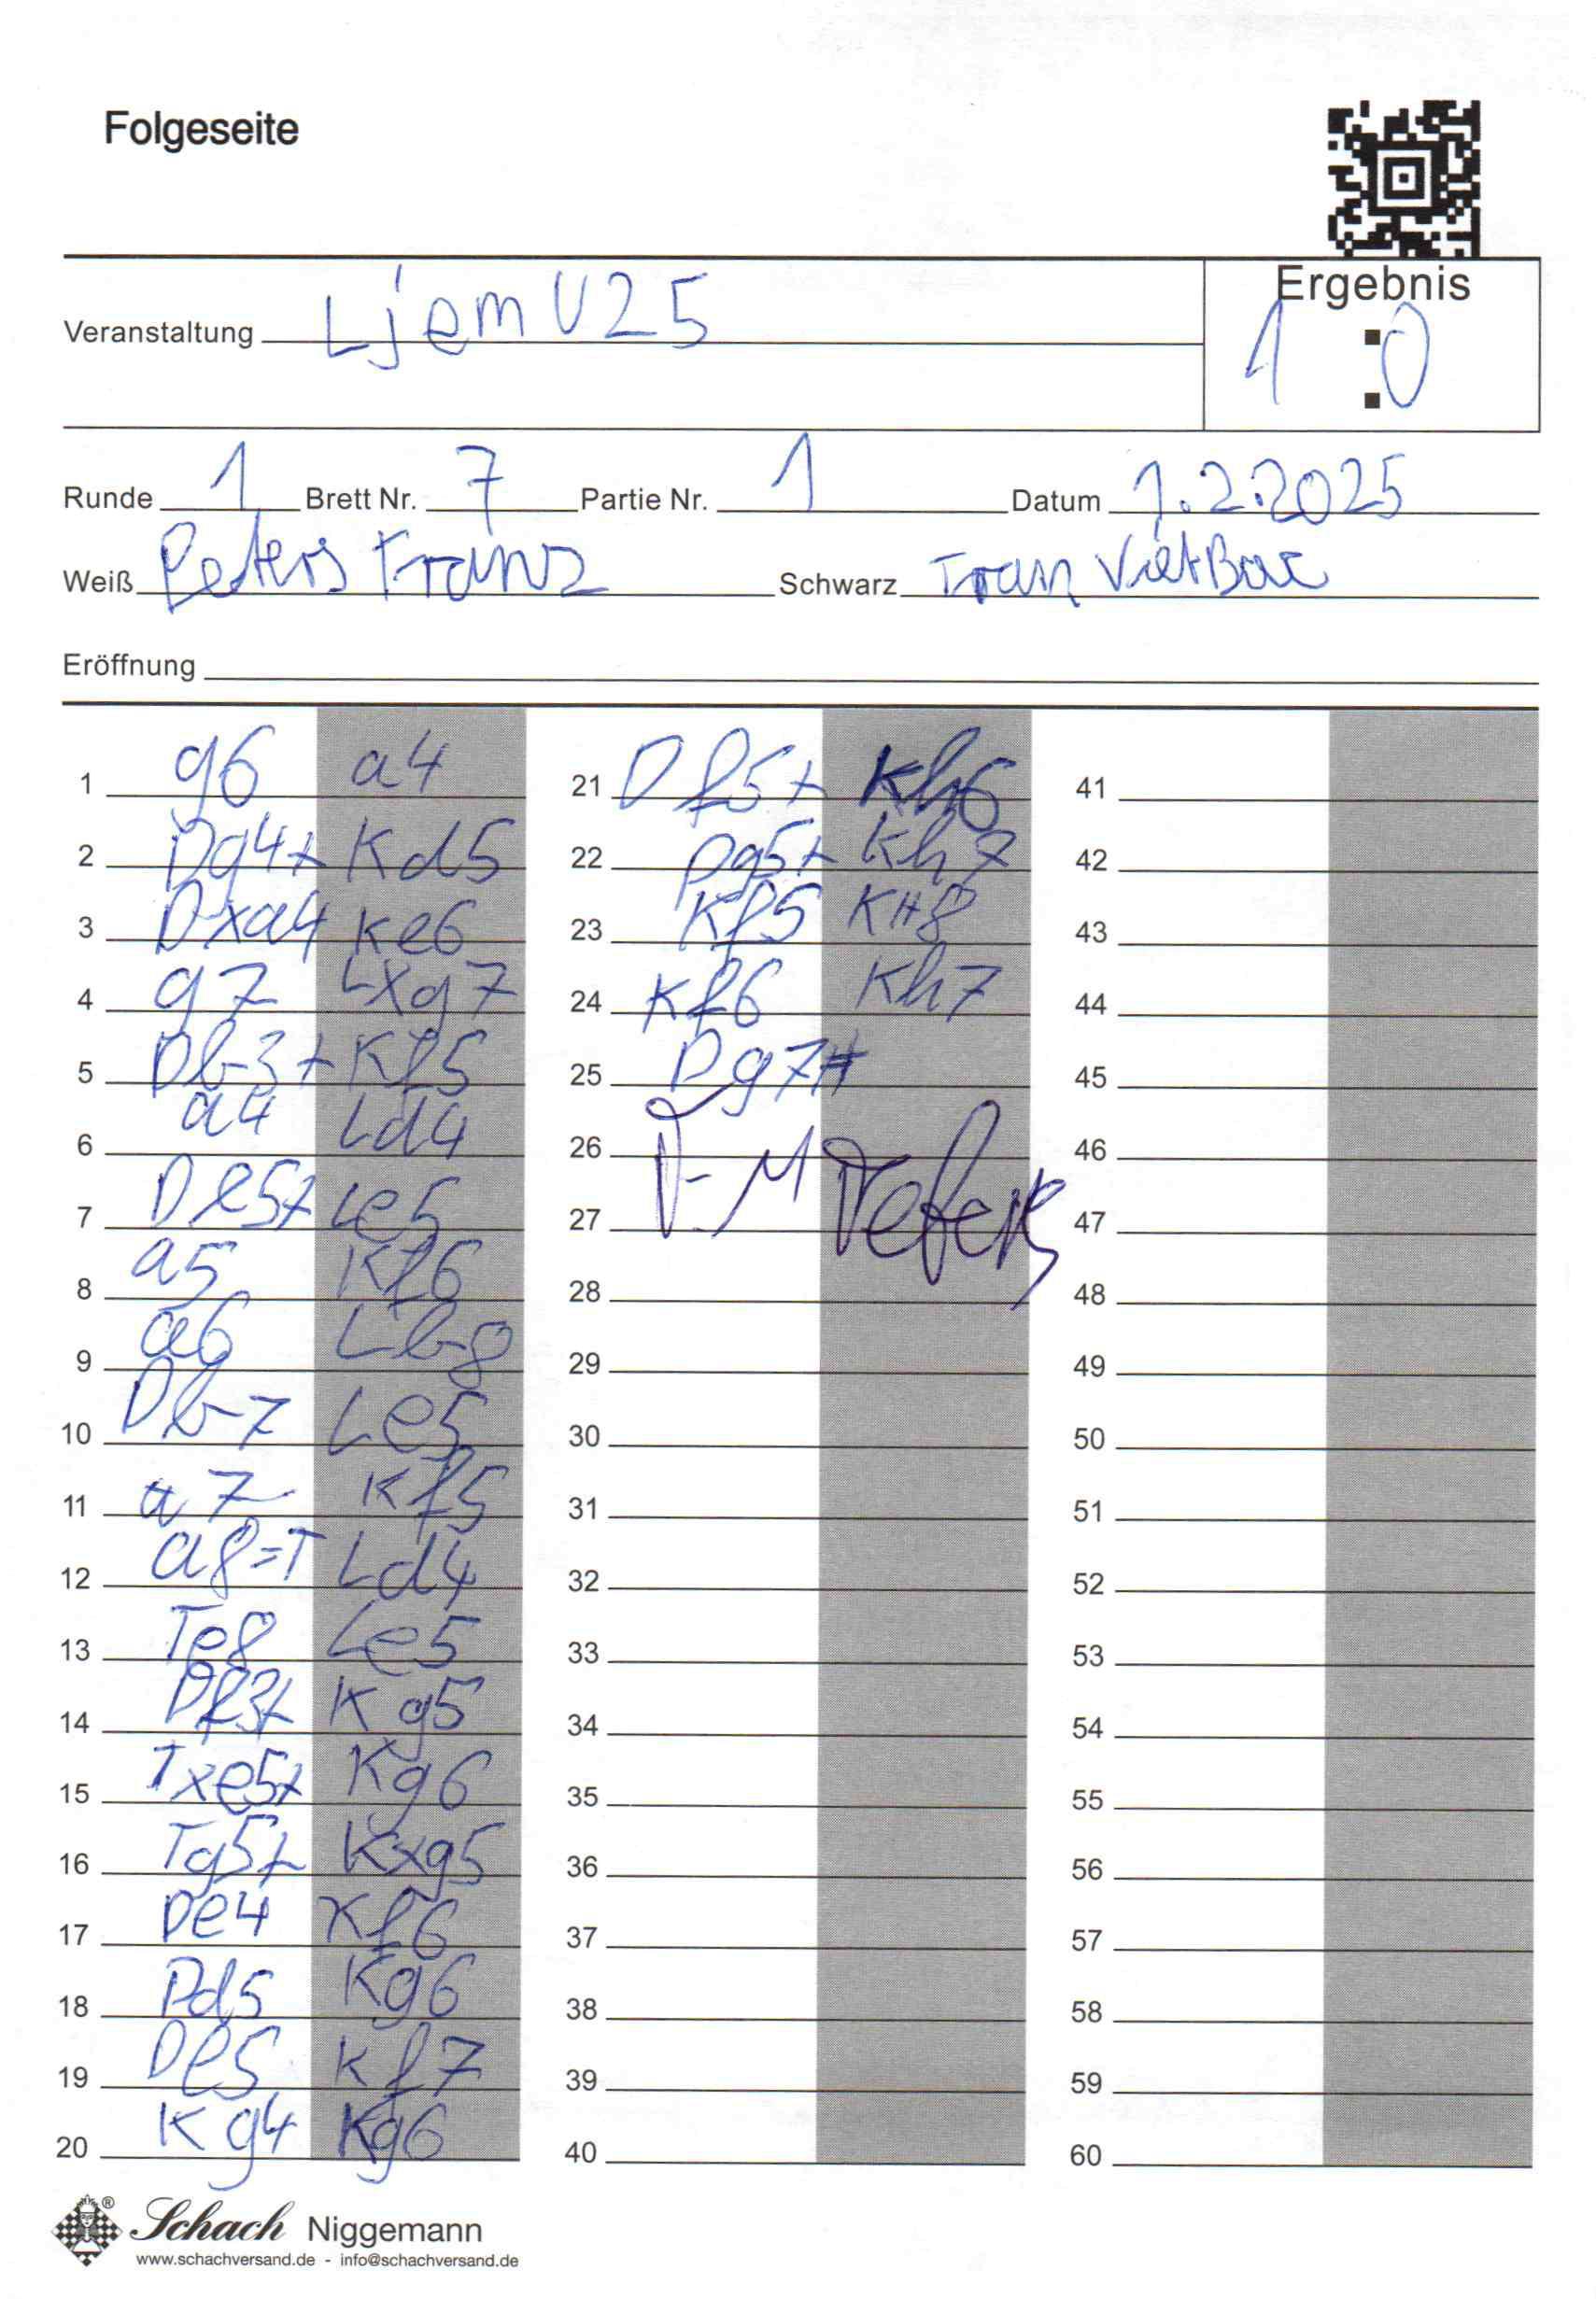 Folgeseite
Veranstaltung LjemU25
Ergebnis
1 : 0
Runde 1 Brett Nr. 7 Partie Nr. 1 Datum 1.2.2025
Weiß Peters Franz Schwarz Tran Viet Bac
Eröffnung
1 g6 a4
2 Dg4+ Kd5
3 Dxa4 Ke6
4 g7 Lxg7
5 Db3+ Kf5
6 a4 Ld4
7 Df3+ Le5
8 a5 Kf6
9 a6 Lb8
10 Db7 Le5
11 a7 Kf5
12 a8=T Ld4
13 Te8 Le5
14 Df3+ Kg5
15 Txe5+ Kg6
16 Tg5+ Kxg5
17 De4 Kf6
18 Dd5 Kg6
19 De5 Kf7
20 Kg4 Kg6
21 Df5+ Kh6
22 Dg5+ Kh7
23 Kf5 KH8
24 Kf6 Kh7
25 Dg7#
26
27
28
29
30
31
32
33
34
35
36
37
38
39
40
41
42
43
44
45
46
47
48
49
50
51
52
53
54
55
56
57
58
59
60
Schach Niggemann
www.schachversand.de - info@schachversand.de